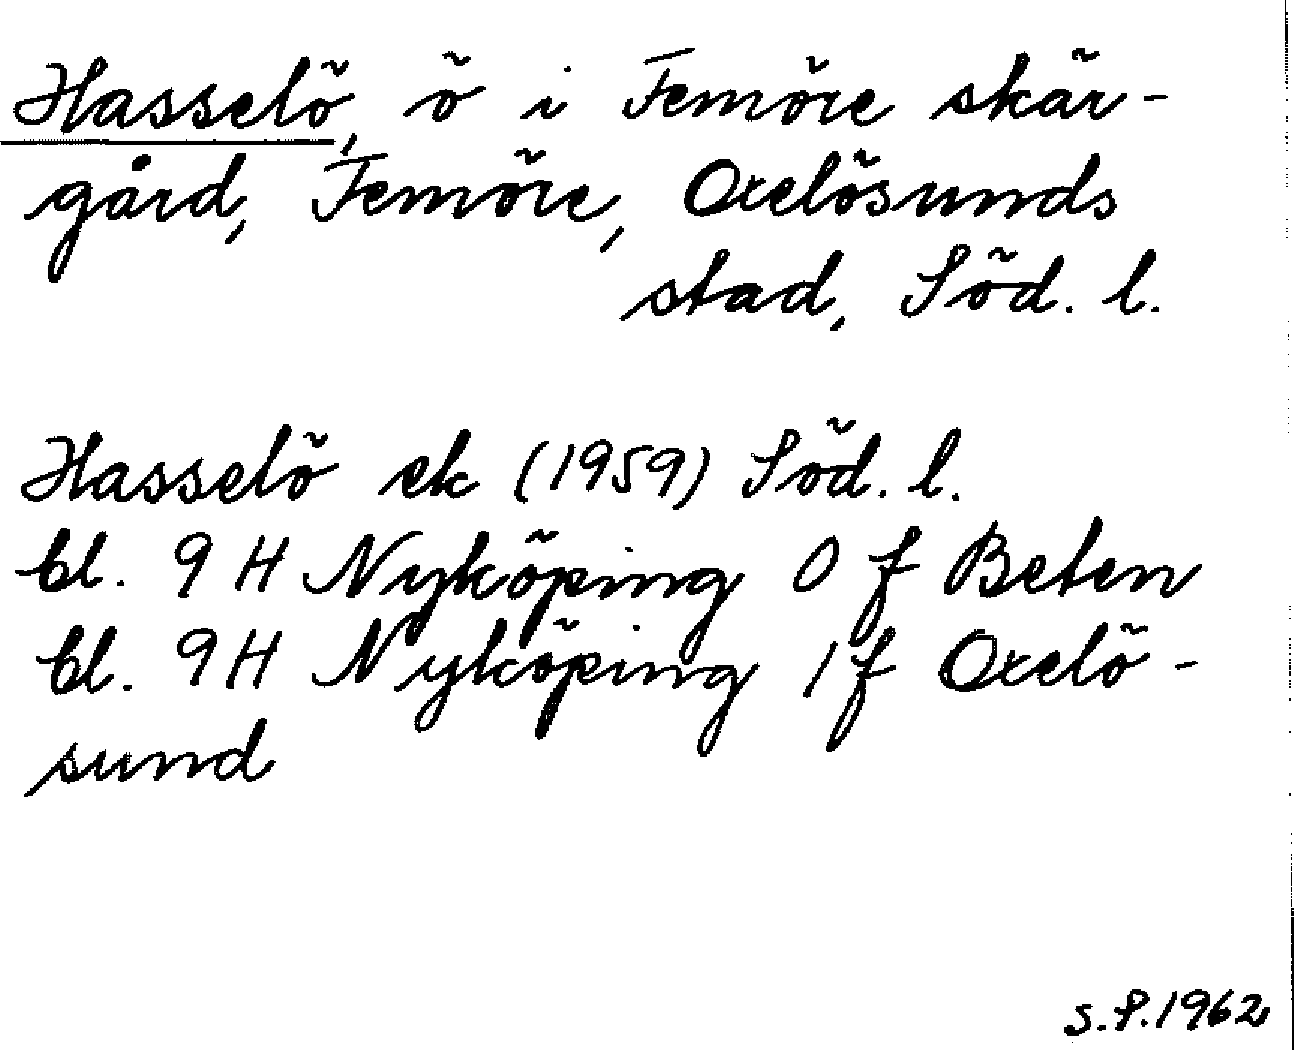 Hasselö, ö i Femöre skär-
gård, Femöre, Oxelösunds
stad, Söd. l.
Hasselö ek (1959) Söd. l.
bl. 9 H Nyköping 0 f Beten
bl. 9H Nyköping 1f Oxelö-
sund
S.P.1962